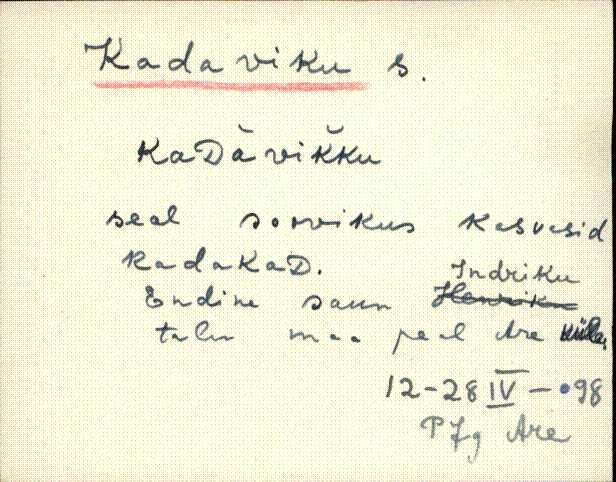 Kadaviku s.
KaDàvikǩu
seal soovikus kasvasid
kadakaD.
Indriku
Endine saun Henriku
talu maa peal Are külas
12-28 IV - 98
PJg Are